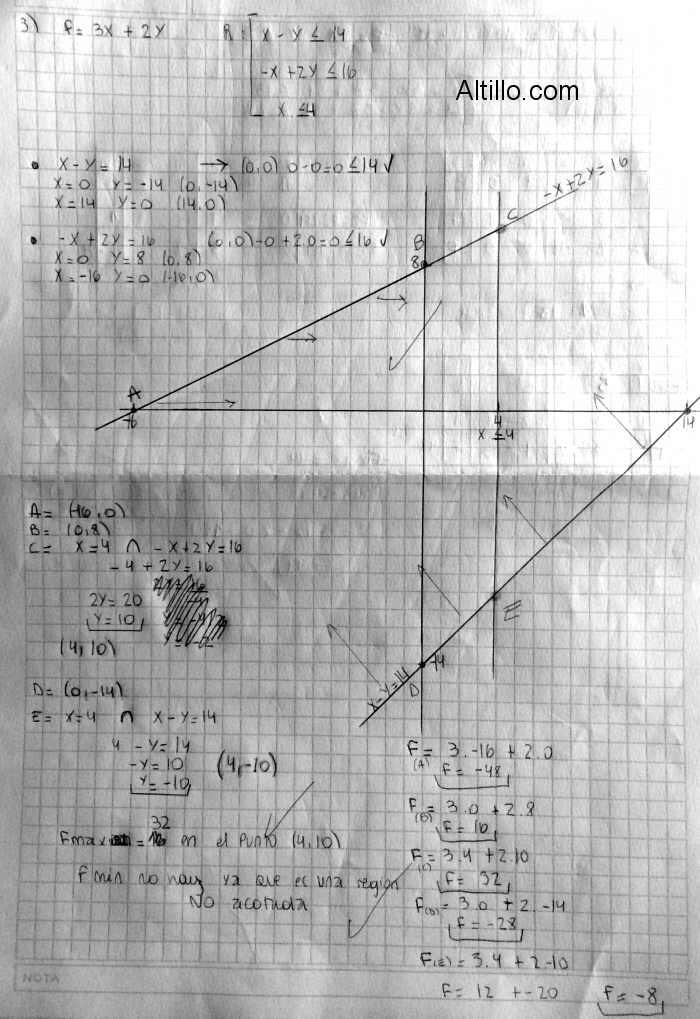 3) f = 3x + 2y R: x - y ≤ 14
-x + 2y ≤ 16
x ≤ 4
Altillo.com
• x - y = 14 → (0,0) 0-0=0 ≤ 14 √
x=0 y=-14 (0,-14)
x=14 y=0 (14,0)
-x+2y=16
• -x + 2y = 16 (0,0) -0 + 2.0 = 0 ≤ 16 √
x=0 y=8 (0,8)
x=-16 y=0 (-16,0)
B
8
C
A
-16
4
x ≤ 4
14
E
-14
D
x-y=14
A = (-16,0)
B = (0,8)
C = x=4 ∩ -x+2y=16
-4 + 2y = 16
2y = 20
y = 10
(4,10)
D = (0,-14)
E = x=4 ∩ x-y=14
4 - y = 14
-y = 10
y = -10
(4,-10)
F(A) = 3.-16 + 2.0
F = -48
F(B) = 3.0 + 2.8
F = 16
F(C) = 3.4 + 2.10
F = 32
F(D) = 3.0 + 2.-14
F = -28
F(E) = 3.4 + 2-10
F = 12 + -20 F = -8
Fmax = 32 en el punto (4,10)
f min no hay ya que es una region
NO acotada
NOTA